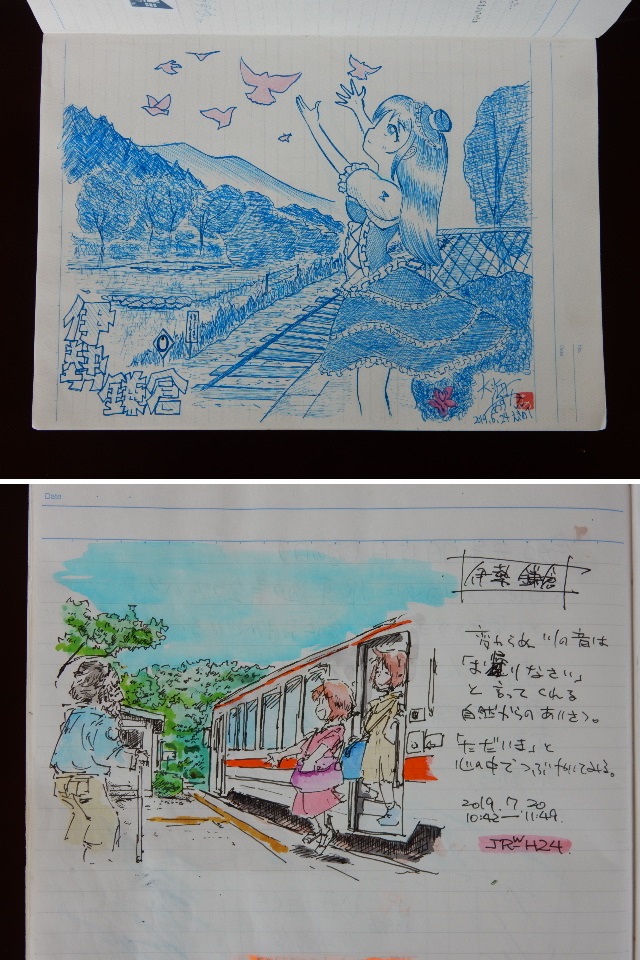 伊勢
鎌倉
2019.6.24
Date
伊勢鎌倉
変わらぬ川の音は
「お帰りなさい」
と言ってくれる
自然からのあいさつ。
「ただいま」と
心の中でつぶやいてみる。
2019.7.20
10:42—11:49
JRW H24